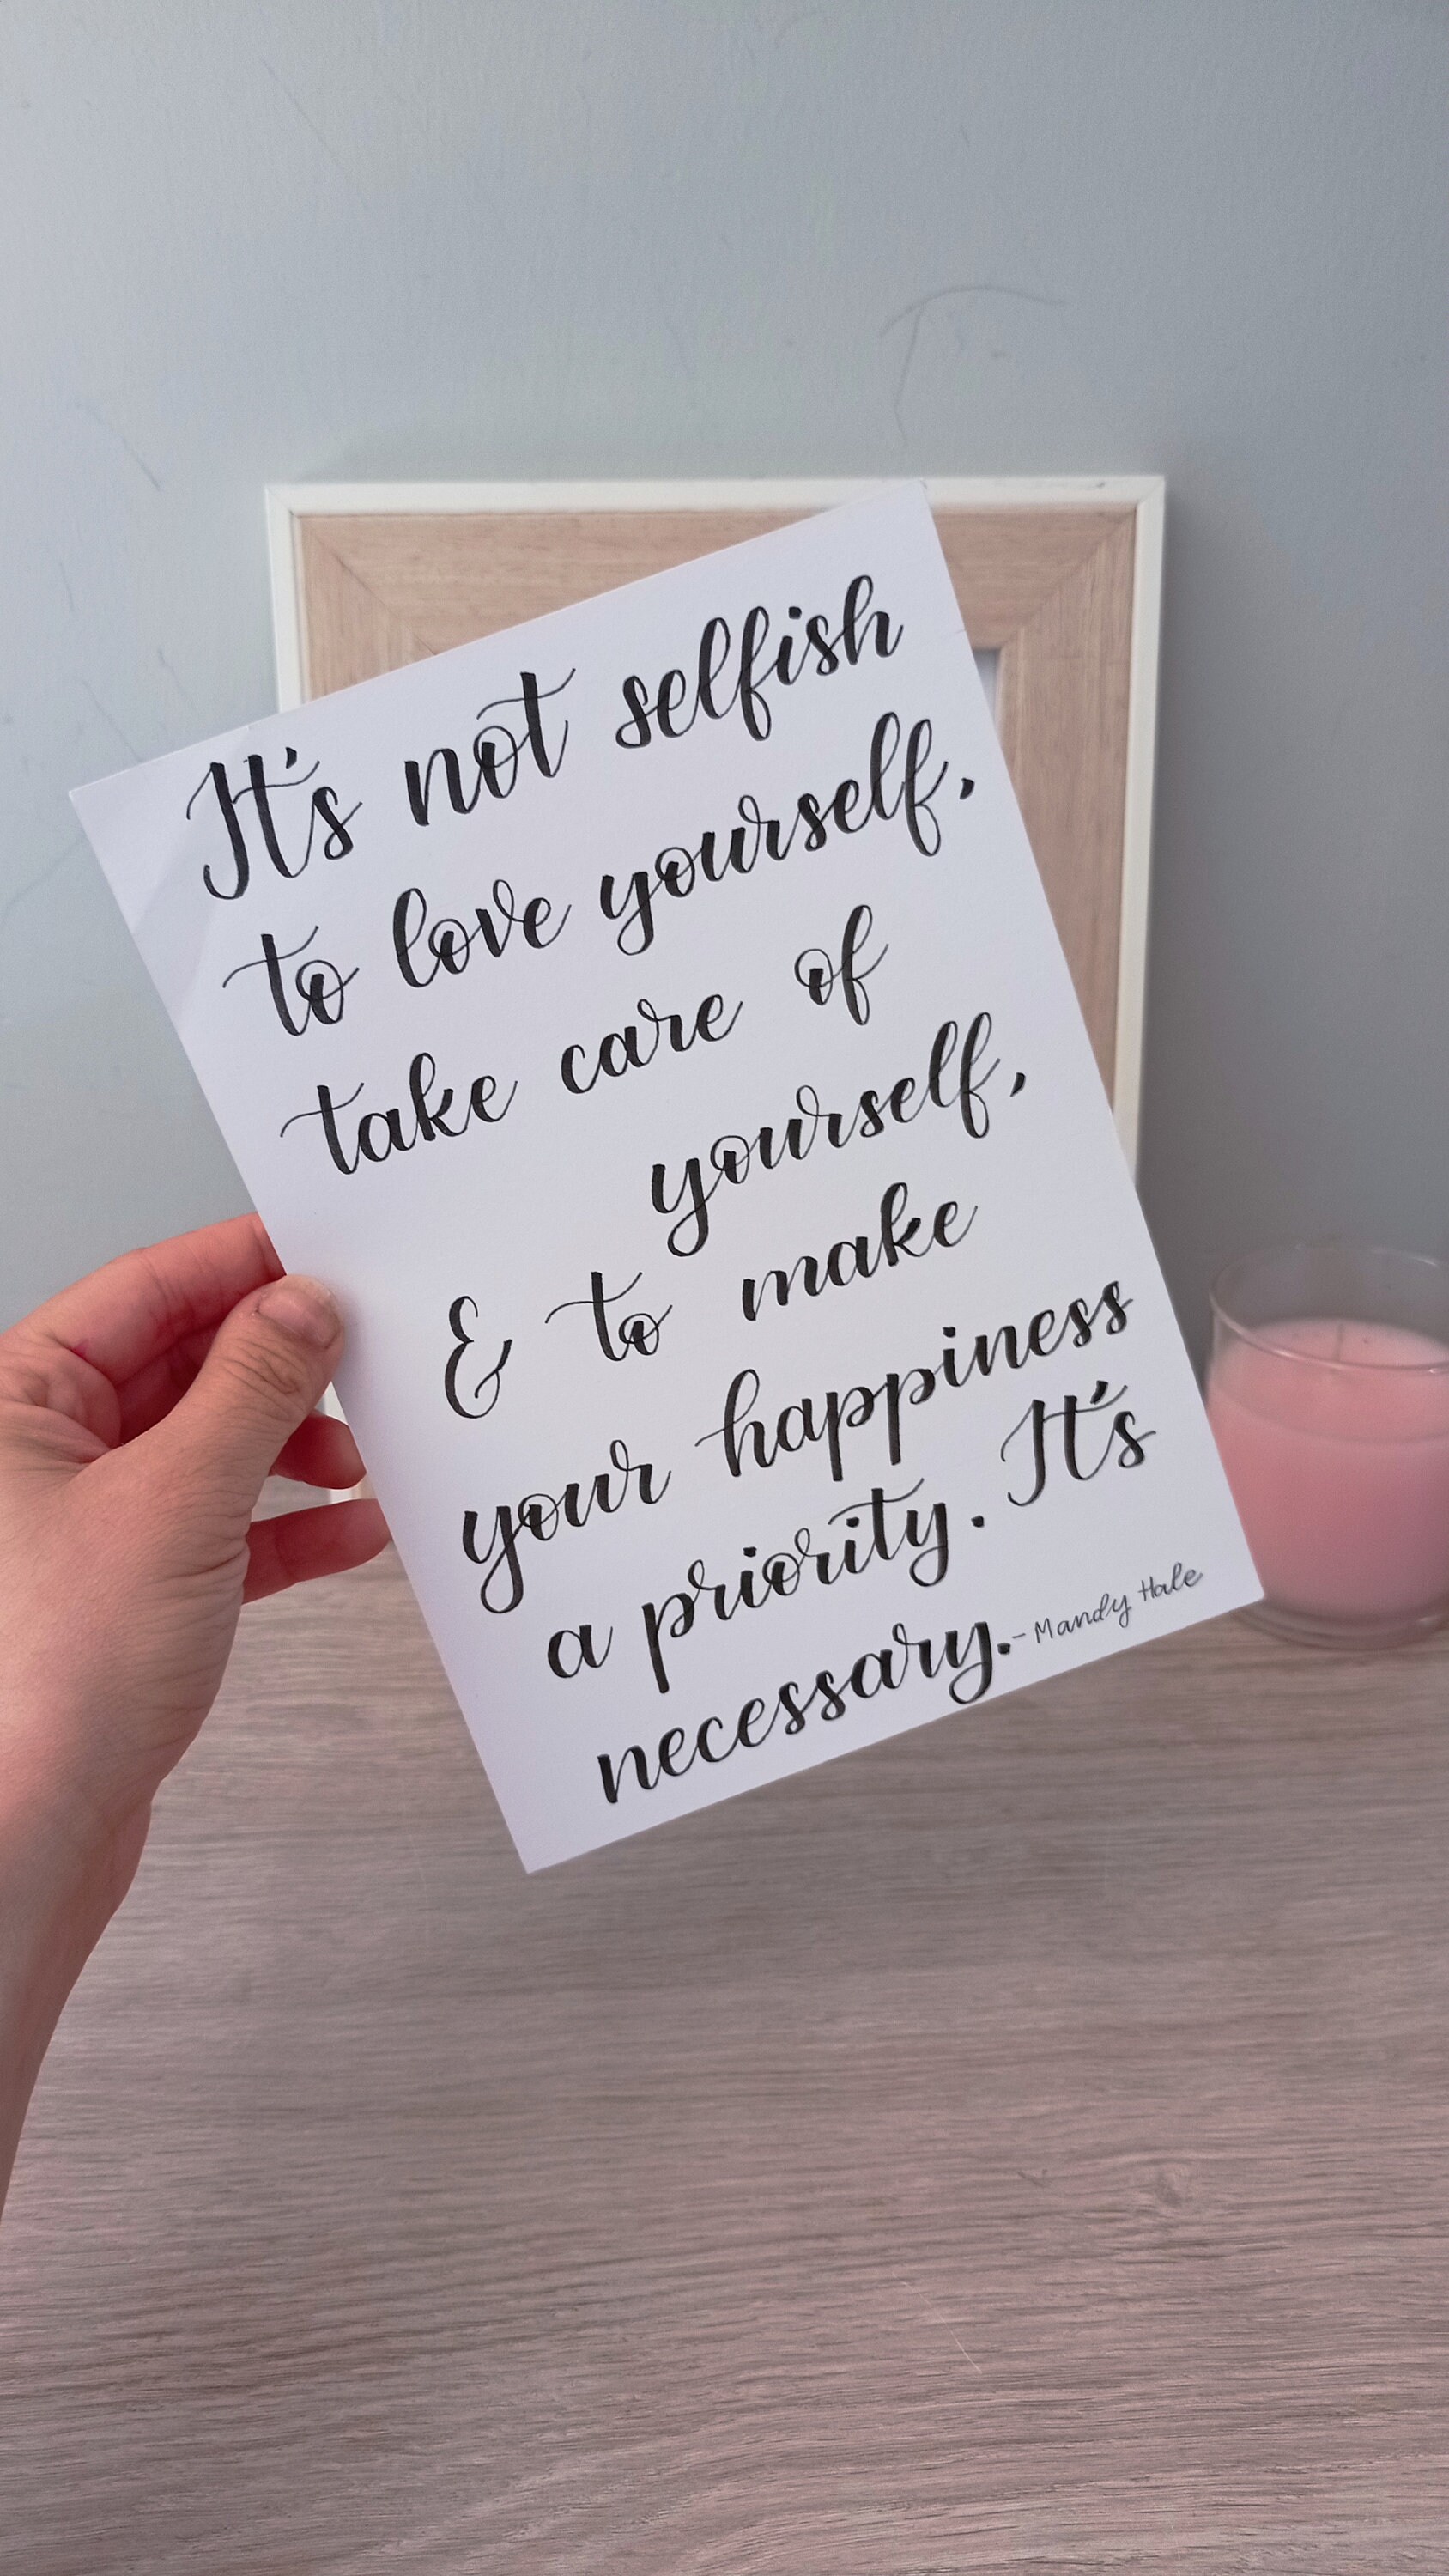 It's not selfish
to love yourself,
take care of
yourself,
& to make
your happiness
a priority. It's
necessary. - Mandy Hale